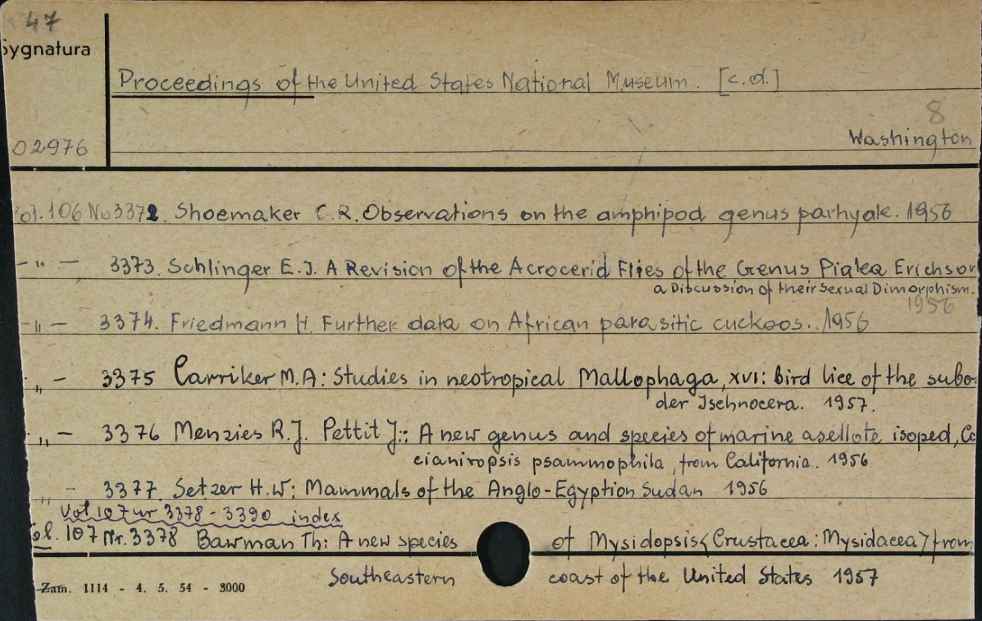 47
Sygnatura
Proceedings of the United States National Museum. [c.d.]
8
02976
Washington
Vol. 106 No 3372. Shoemaker C.R. Observations on the amphipod genus parhyale. 1956
-"- 3373. Schlinger E.I. A Revision of the Acrocerid Flies of the Genus Pialea Erichson
a Discussion of their Sexual Dimorphism.
1956
-"- 3374. Friedmann H. Further data on African parasitic cuckoos. 1956
-"- 3375 Carriker M.A: Studies in neotropical Mallophaga, XVI: bird lice of the subo
der Ischnocera. 1957.
-"- 3376 Menzies R.J. Pettit J.: A new genus and species of marine asellote isoped, Ca
cianiropsis psammophila, from California. 1956
-"- 3377. Setzer H.W: Mammals of the Anglo-Egyption Sudan 1956
Vol 107 nr 3378 - 3390 index
Vol. 107 Nr. 3378 Bawman Th: A new species of Mysidopsis (Crustacea: Mysidacea) from
Southeastern coast of the United States 1957
Zam. 1114 - 4. 5. 54 - 3000